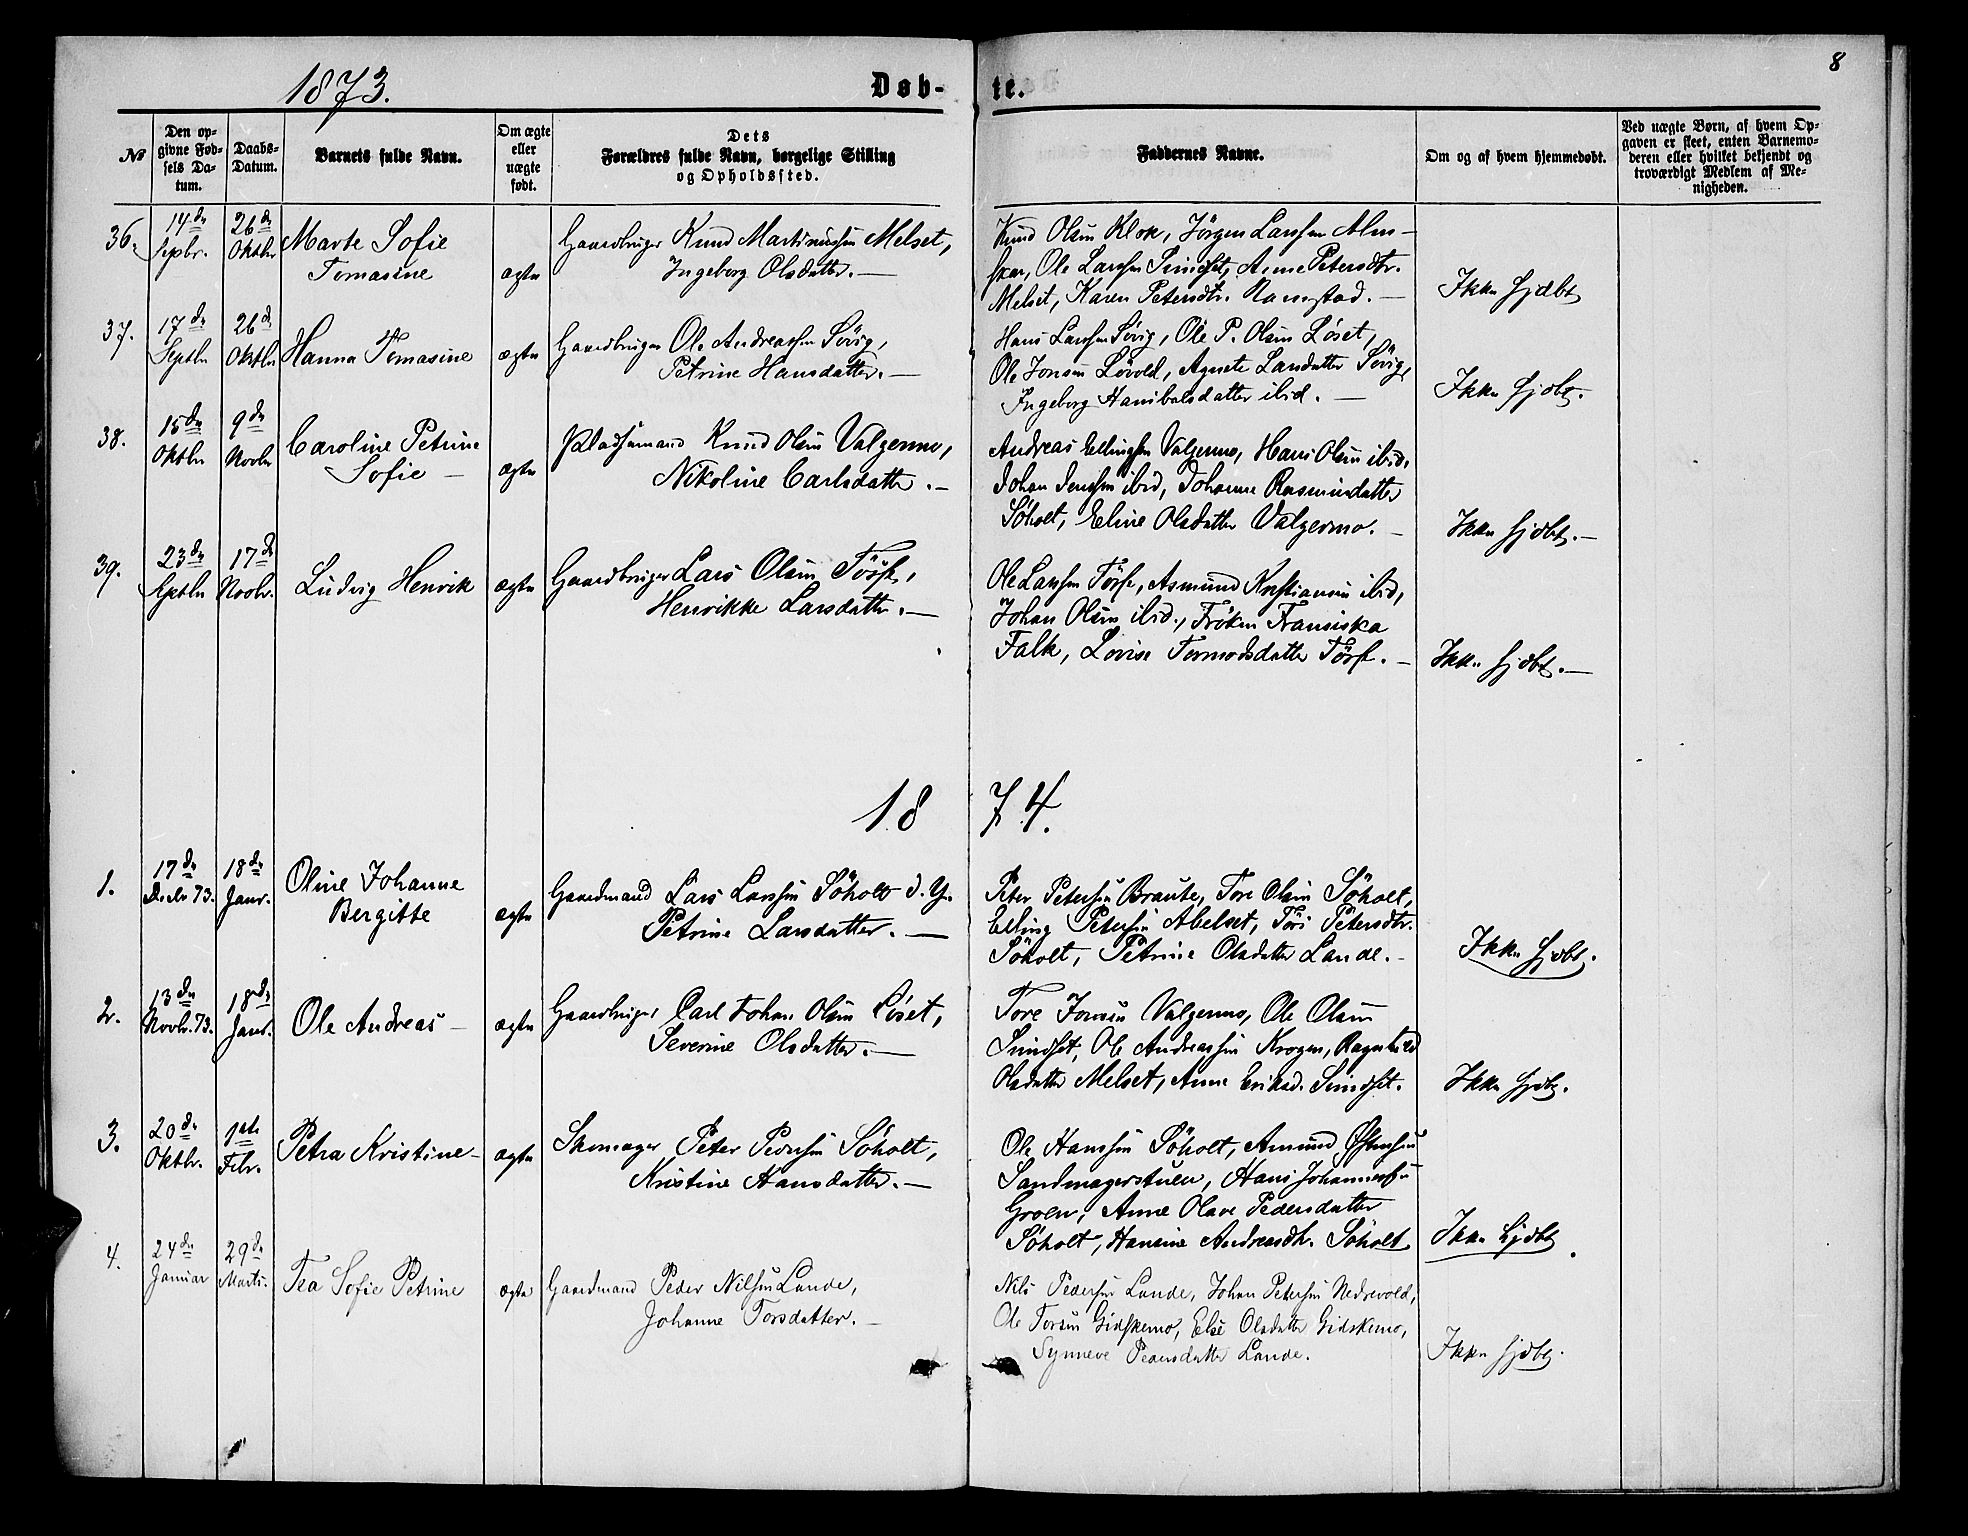 8
1873.
Døb-
te.
No
Den op-
givne Fød-
sels Da-
tum.
Daabs-
Datum.
Barnets fulde Navn.
Om ægte
eller
uægte
født.
Dets
Forældres fulde Navn, borgelige Stilling
og Opholdssted.
Faddernes Navne.
Om og af hvem hjemmedøbt.
Ved uægte Børn, af hvem Op-
gaven er skeet, enten Barnemo-
deren eller hvilket bekjendt og
troværdigt Medlem af Me-
nigheden.
36.
14de
Sepbr.
26de
Oktbr
Marte Sofie
Tomasine
ægte
Gaardbruger Knud Martinussen Melset,
Ingeborg Olsdatter. —
Knud Olsen Klok, Jörgen Larssen Alm-
skar, Ole Larssen Sundset, Anne Petersdtr.
Melset, Karen Petersdtr. Ramstad. —
Ikke hjdbt
37.
17de
Septbr
26de
Oktbr
Hanna Tomasine
ægte
Gaardbruger Ole Andreassen Sövig,
Petrine Hansdatter. —
Hans Larssen Sövig, Ole P. Olsen Löset,
Ole Jonsen Lövold, Agnete Larsdatter Sövig,
Ingeborg Hanibalsdatter ibid. —
Ikke hjdbt.
38.
15de
Oktbr
9de
Novbr
Caroline Petrine
Sofie —
ægte
Pladsemand Knud Olsen Valgermo,
Nikoline Carlsdatter. —
Andreas Ellingsen Valgermo, Hans Olsen ibid,
Johan Jenssen ibid, Johanne Rasmusdatter
Söholt, Eline Olsdatter Valgermo. —
Ikke hjdbt. —
39.
23de
Septbr
17de
Novbr.
Ludvig Henrik
ægte
Gaardbruger Lars Olsen Törse,
Henrikke Larsdatter. —
Ole Larssen Törse, Asmund Kristiansen ibid,
Johan Olsen ibid., Fröken Fransiska
Falk, Lovise Tormodsdatter Törse. —
Ikke hjdbt. —
18 74.
1.
17de
Decbr 73.
18de
Janr.
Oline Johanne
Bergitte
ægte
Gaardmand Lars Larssen Söholt d. Y.
Petrine Larsdatter. —
Peter Petersen Braute, Tore Olsen Söholt,
Elling Petersen Abelset, Töri Petersdtr.
Söholt, Petrine Olsdatter Lande. —
Ikke hjdbt.
2.
13de
Novbr. 73.
18de
Janr.
Ole Andreas —
ægte
Gaardbruger Carl Johan Olsen Löset,
Severine Olsdatter. —
Tore Jonsen Valgermo, Ole Olsen
Sundset, Ole Andreassen Krogen, Ragnhild
Olsdatter Melset, Anne Eriksd. Sundset.
Ikke hjdbt.
3.
20de
Oktbr.
1ste
Febr.
Petra Kristine —
ægte
Skomager Peter Pedersen Söholt,
Kristine Hansdatter. —
Ole Hanssen Söholt, Amund Østensen
Sandmagerstuen, Hans Johannessen
Groen, Anne Olave Pedersdatter
Söholt, Hansine Andreasdtr. Söholt
Ikke hjdbt.
4.
24de
Januar
29de
Marts.
Tea Sofie Petrine
ægte
Gaardmand Peder Nilsen Lande,
Johanne Torsdatter. —
Nils Pedersen Lande, Johan Petersen Nedrevold,
Ole Torsen Gidskemo, Else Olsdatter Gidskemo,
Synneve Pedersdatter Lande.
Ikke hjdbt.